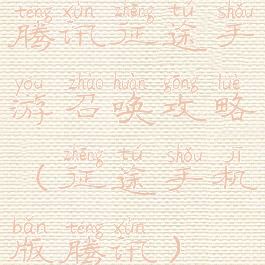 téng xùn zhēng tú shǒu
腾讯征途手
yóu zhào huàn gōng lüè
游召唤攻略
zhēng tú shǒu jī
（征途手机
bǎn téng xùn
版腾讯）